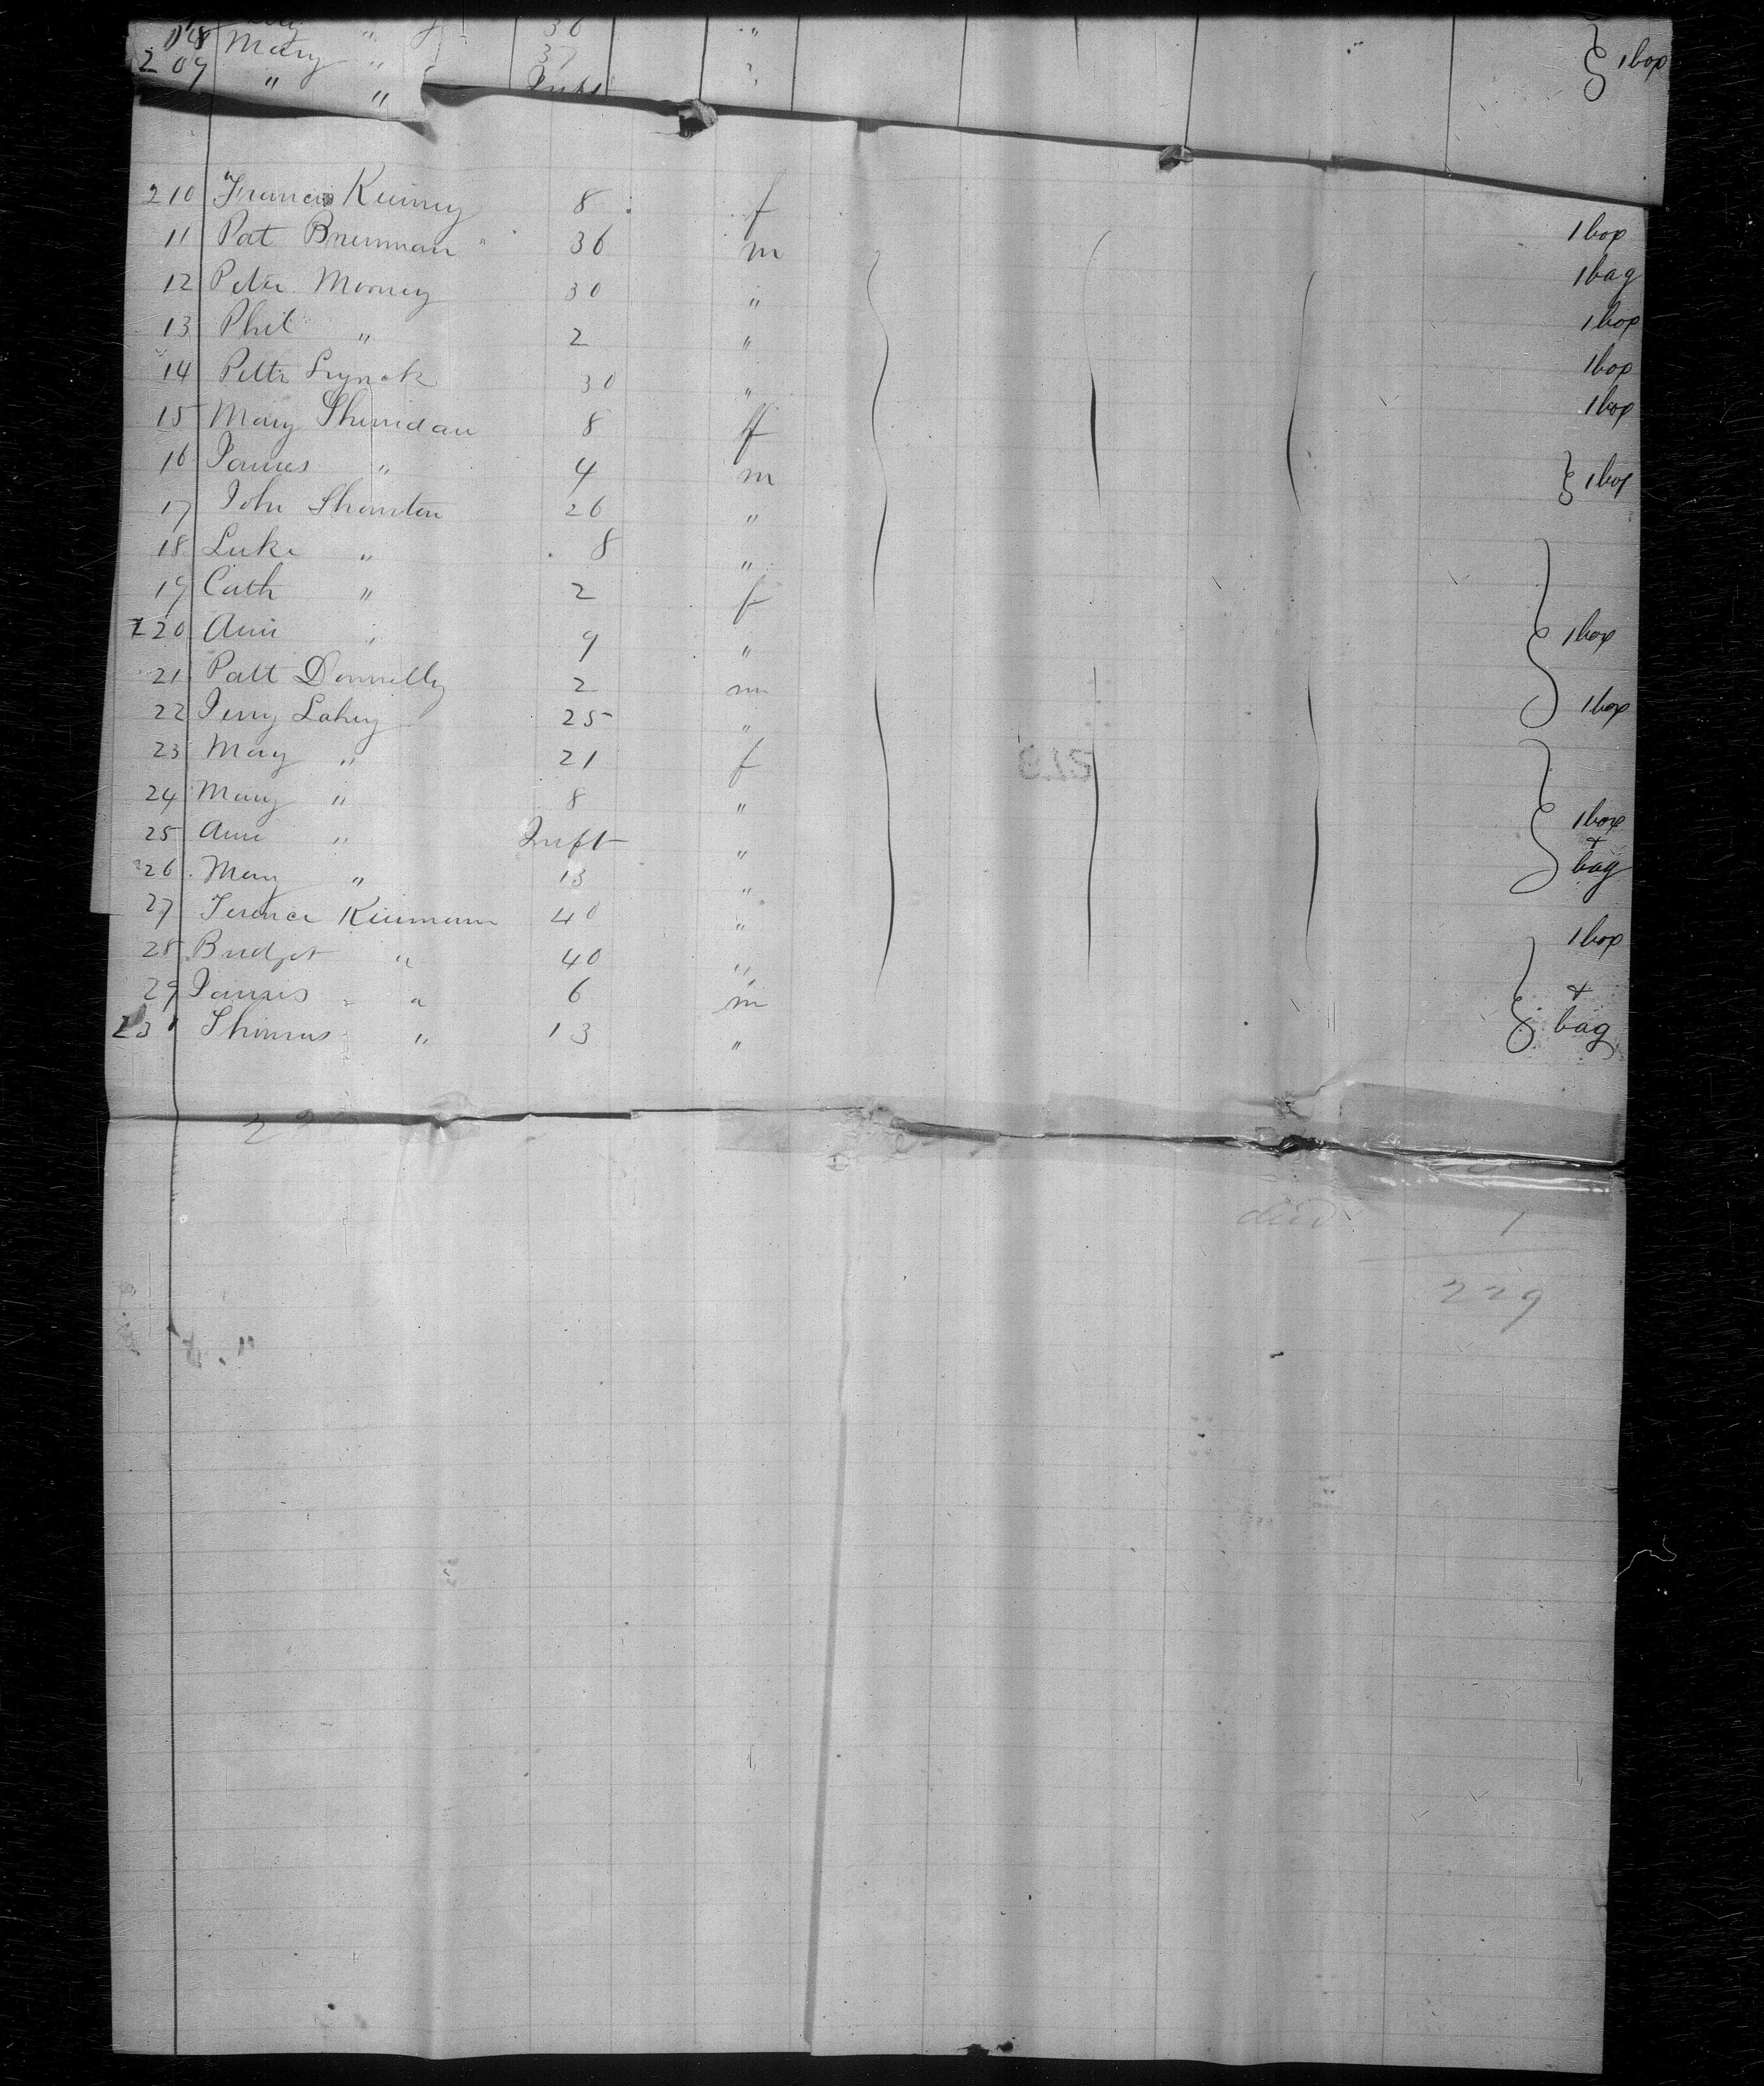 36 "
08 Mary " 37 " 1 box
209 " " Inft
210 Francis Kinney 8 f
11 Pat Brennan 36 m 1 box
12 Peter Morney 30 " 1 bag
13 Phil " 2 " 1 box
14 Pettr Lynch 30 " 1 box
15 Mary Sheridan 8 f 1 box
16 James " 4 m 1 box
17 John Thornton 26 "
18 Luke " 8 "
19 Cath " 2 f
220 Ann " 9 " 1 box
21 Patt Donnelly 2 m
22 Jerry Lahey 25 " 1 box
23 Mary " 21 f
24 Mary " 8 " 1 box
25 Ann " Inft " +
26 Mary " 13 " bag
27 Terence Kiernann 40 "
28 Bridget " 40 " 1 box
29 James " 6 m +
231 Thomas " 13 " bag
died 1
229